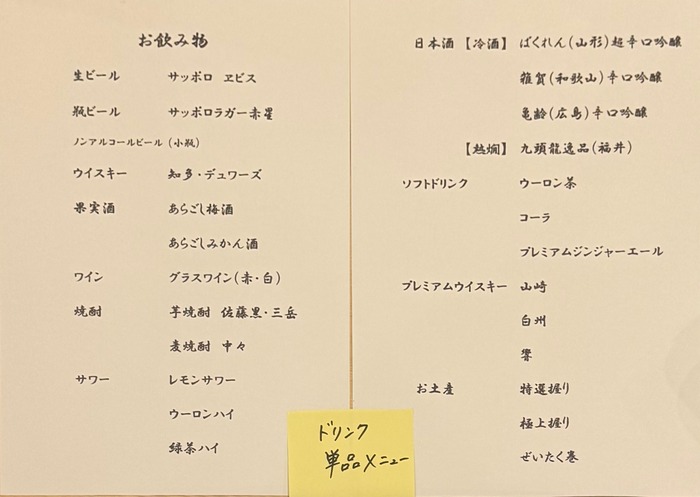 お飲み物
生ビール サッポロ ヱビス
瓶ビール サッポロラガー赤星
ノンアルコールビール（小瓶）
ウイスキー 知多・デュワーズ
果実酒 あらごし梅酒
あらごしみかん酒
ワイン グラスワイン（赤・白）
焼酎 芋焼酎 佐藤黒・三岳
麦焼酎 中々
サワー レモンサワー
ウーロンハイ
緑茶ハイ
日本酒【冷酒】 ばくれん（山形）超辛口吟醸
雑賀（和歌山）辛口吟醸
亀齢（広島）辛口吟醸
【熱燗】 九頭龍逸品（福井）
ソフトドリンク ウーロン茶
コーラ
プレミアムジンジャーエール
プレミアムウイスキー 山崎
白州
響
お土産 特選握り
極上握り
ぜいたく巻
ドリンク
単品メニュー